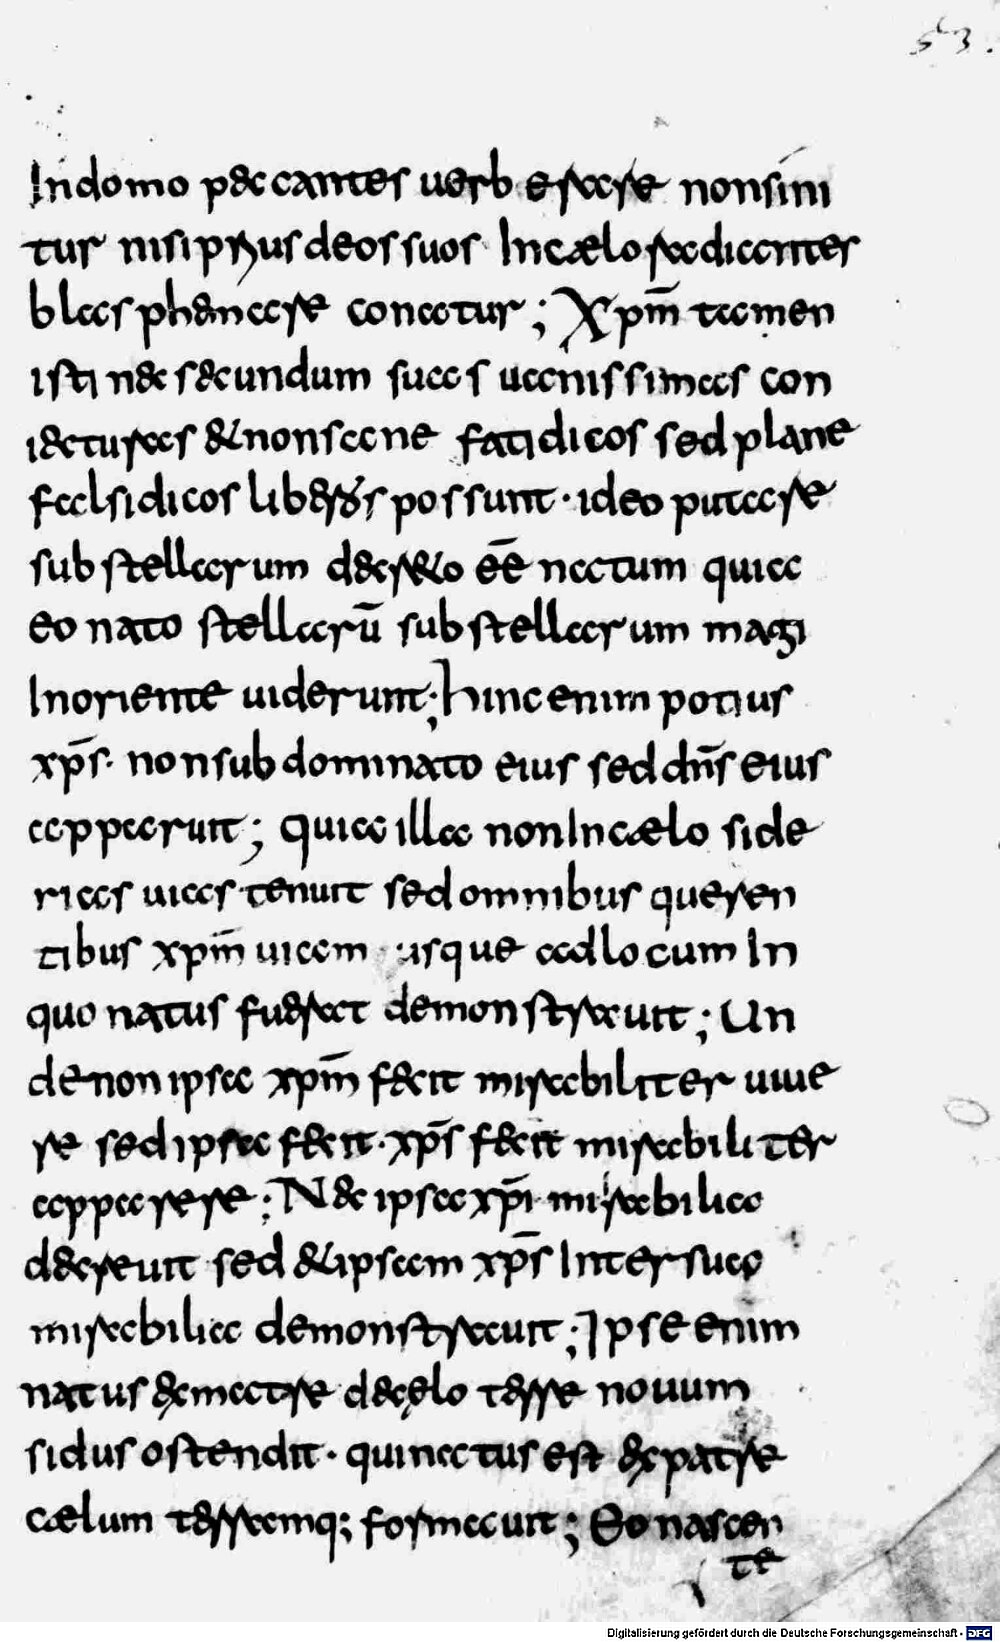 53.
In domo peccantes uerberare non sini
tur nisi prius deos suos In cælo radiantes
blasphemare conatur; Xpm̅ tamen
isti nec secundum suas uanissimas con
iecturas & non sane fatidicos sed plane
falsidicos libros possunt · ideo putare
sub stellarum decreto ee̅ natum quia
eo nato stellarū sub stellarum magi
In oriente uiderunt; hinc enim potius
xp̅s · non sub dominato eius sed dn̅s eius
apparuit; quia illa non In cælo side
rias uias tenuit sed omnibus queren
tibus xpm̅ uiam usque ad locum In
quo natus fuerat demonstrauit; Un
de non ipsa xpm̅ fecit mirabiliter uiue
re sed ipsa fecit · xp̅s fecit mirabiliter
apparere; Nec ipsa xp̅i mirabilia
decreuit sed & ipsam xp̅s Inter sua
mirabilia demonstrauit; Ipse enim
natus ex matre de cęlo terre nouum
sidus ostendit · qui natus est ex patre
cælum terramq; formauit; Eo nascen
te
Digitalisierung gefördert durch die Deutsche Forschungsgemeinschaft - DFG